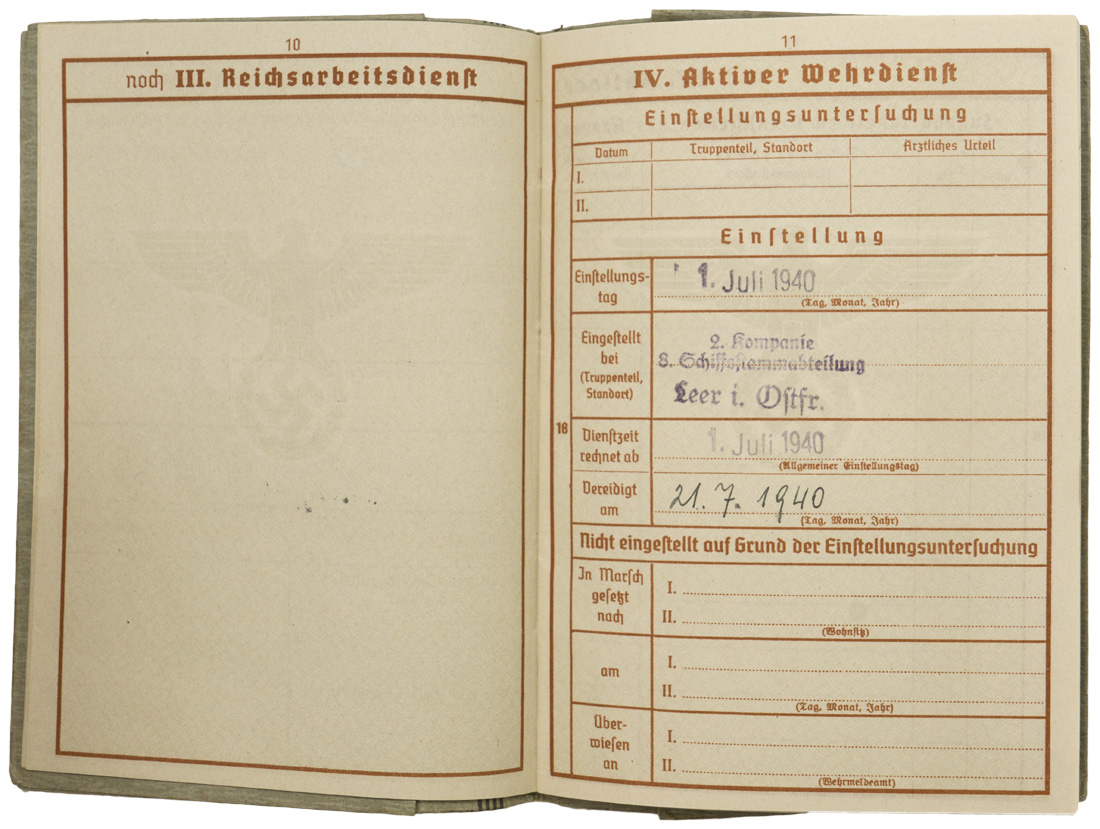 10
noch III. Reichsarbeitsdienst
11
IV. Aktiver Wehrdienst
Einstellungsuntersuchung
Datum Truppenteil, Standort Ärztliches Urteil
I.
II.
Einstellung
Einstellungs-
tag
1. Juli 1940
(Tag, Monat, Jahr)
Eingestellt
bei
(Truppenteil,
Standort)
2. Kompanie
8. Schiffsstammabteilung
Leer i. Ostfr.
18
Dienstzeit
rechnet ab
1. Juli 1940
(Allgemeiner Einstellungstag)
Vereidigt
am
21. 7. 1940
(Tag, Monat, Jahr)
Nicht eingestellt auf Grund der Einstellungsuntersuchung
In Marsch
gesetzt
nach
I.
II.
(Wohnsitz)
am
I.
II.
(Tag, Monat, Jahr)
Über-
wiesen
an
I.
II.
(Wehrmeldeamt)